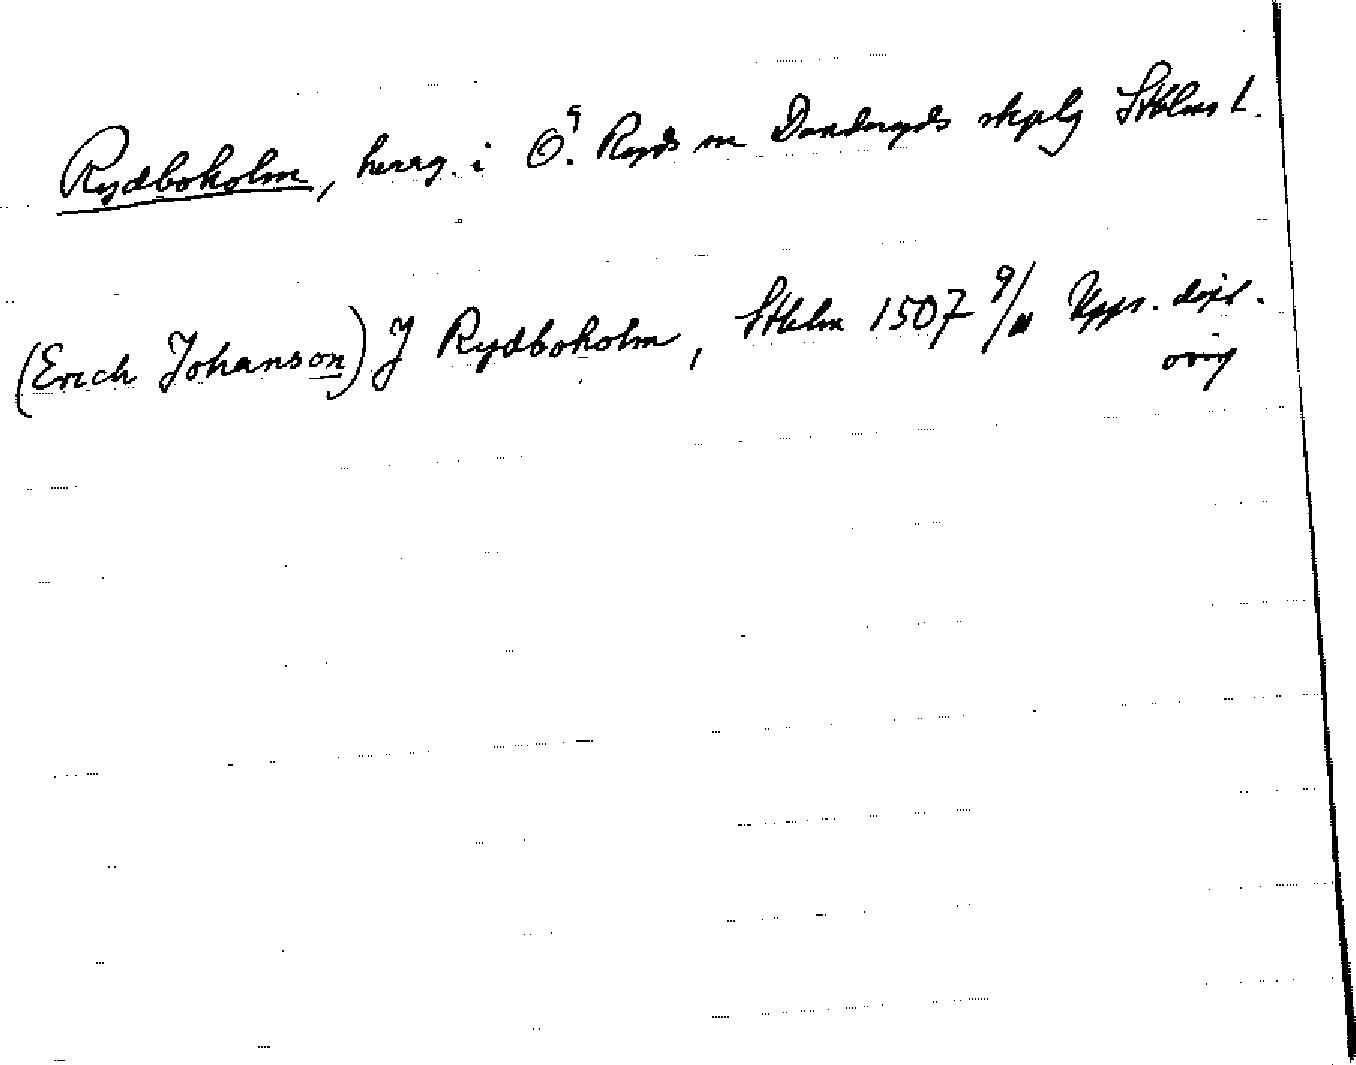 Rydboholm, herrg. i Ö. Ryds sn Danderyds skplg Sthlms l.
(Erich Johanson) J Rydboholm, Sthlm 1507 9/11 Upps. dipl.
orig